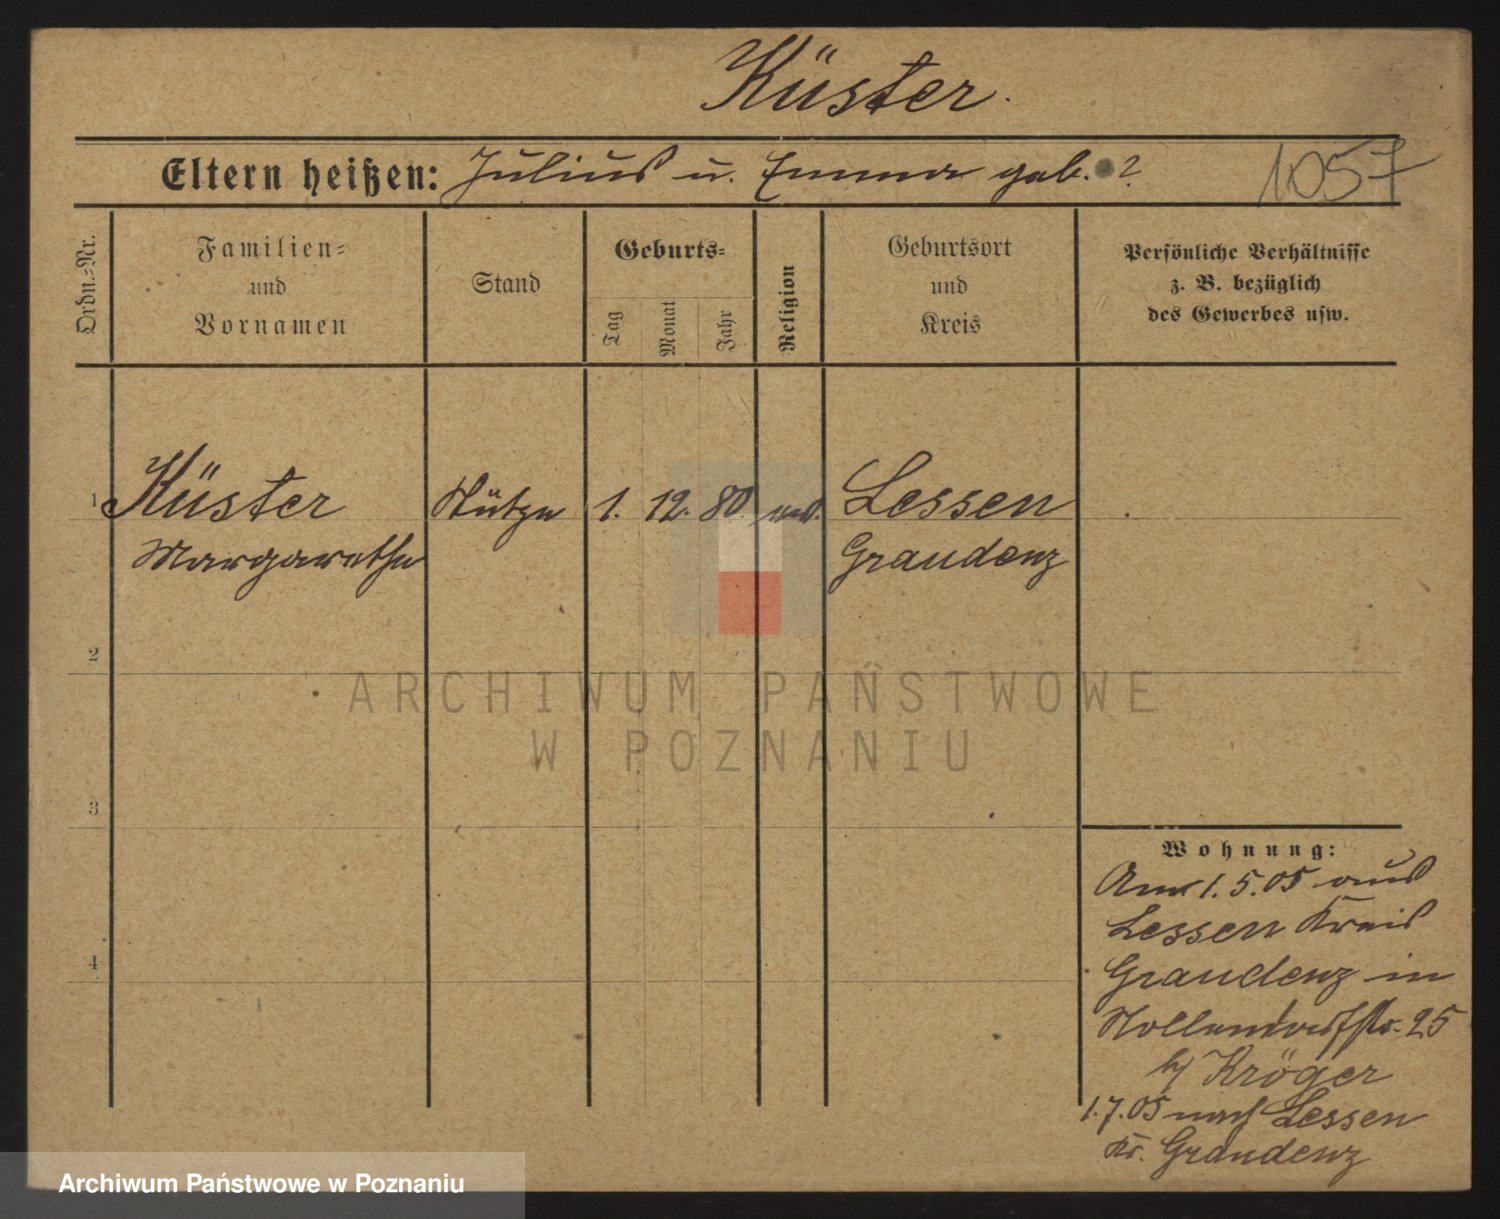 Küster.
Eltern heißen: Julius u. Emma geb. ?
1057
Ordn.-Nr.
Familien-
und
Vornamen
Stand
Geburts-
Tag
Monat
Jahr
Religion
Geburtsort
und
Kreis
Persönliche Verhältnisse
z. B. bezüglich
des Gewerbes usw.
1 Küster Stütze 1. 12. 80. Lessen
Margarethe Graudenz
2
3
4
Wohnung:
Am 1.5.05 aus
Lessen Kreis
Graudenz in
Nollendorfstr. 25
b/ Kröger
1.7.05 nach Lessen
Kr. Graudenz
ARCHIWUM PAŃSTWOWE
W POZNANIU
Archiwum Państwowe w Poznaniu